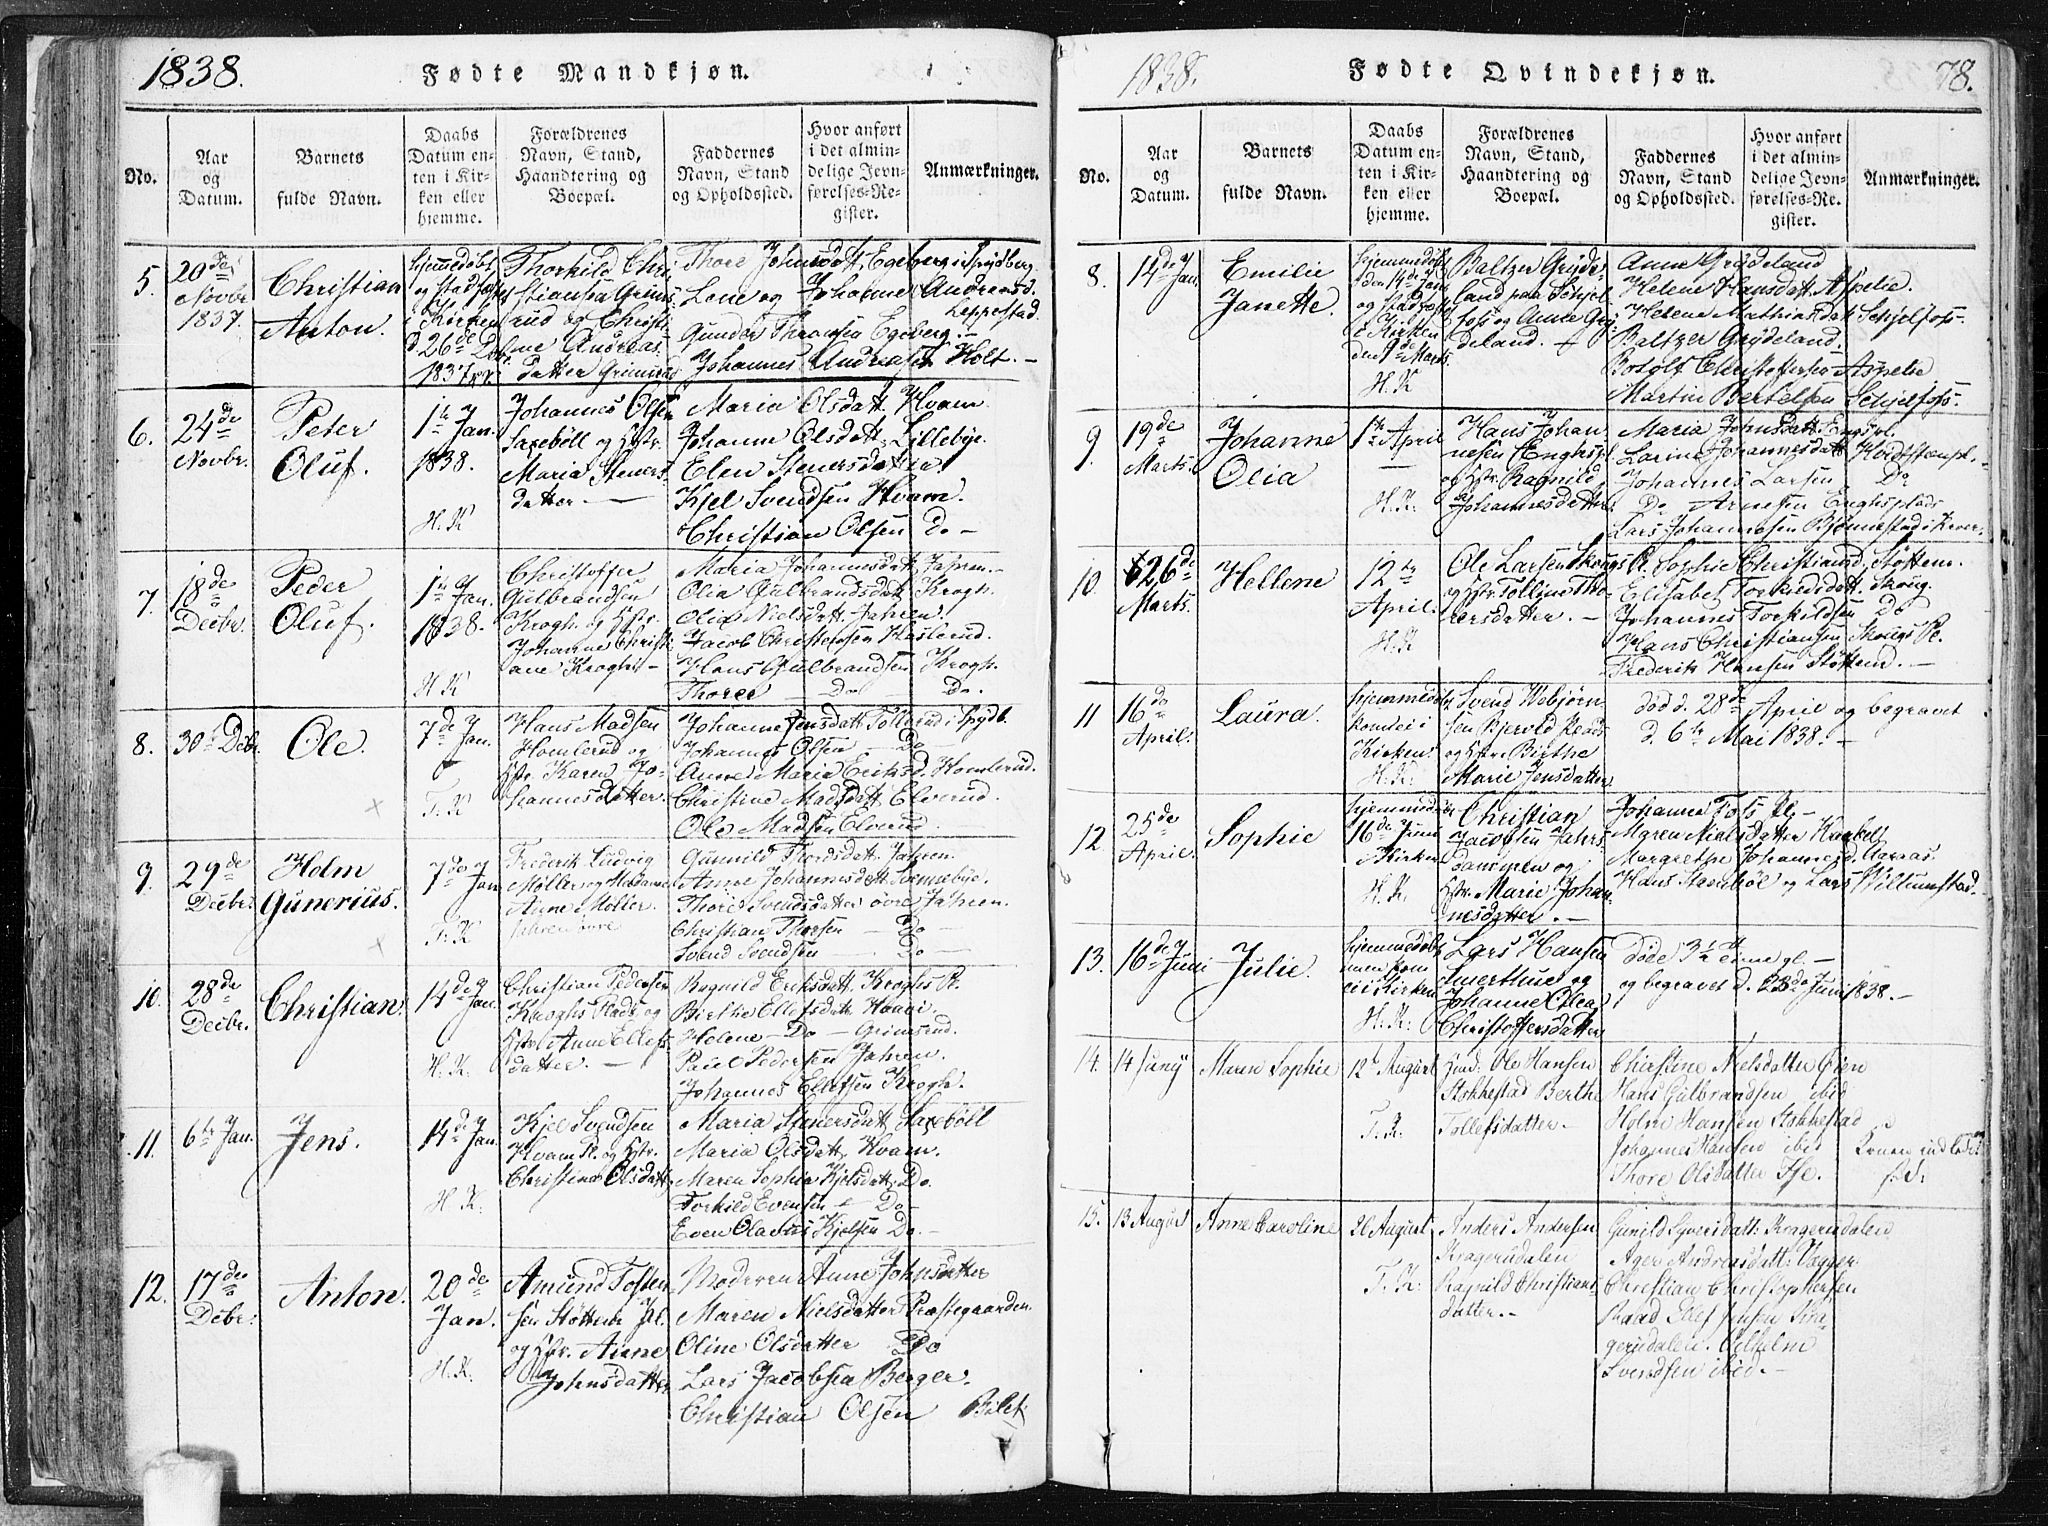 1838.
Fødte Mandkjøn.
No.
Aar
og
Datum.
Barnets
fulde Navn.
Daabs
Datum en-
ten i Kir-
ken eller
hjemme.
Forældrenes
Navn, Stand,
Haandtering og
Boepæl.
Faddernes
Navn, Stand
og Opholdssted.
Hvor anført
i det almin-
delige Jevn-
førelses-Re-
gister.
Anmærkninger.
5.
20de
Novbr
1837.
Christian
Anton.
hjemmedøbt
og stadfæstet
i Kirken
d. 26de Dcbr
1837
Thorkild Chri-
stiansen Grims-
rud og Christi-
ne Andreas-
datter Grimsrud
Thore Johansdatt. Egeberg i Spydberg.
Lene og Johanne Andreasd.
Leppestad.
Gunder Thronsen Egeberg.
Johannes Andreasen Holt. -
6.
24de
Novbr.
Peter
Oluf.
1te Jan.
1838.
H. K
Johannes Olsen
Saxebøll og Hstr.
Maria Steners-
datter. -
Maria Olsdatt. Hvam.
Johanne Olsdatt. Lillebye.
Elen Stenersdatter
Kjel Svendsen Hvam.
Christian Olsen Do -
7.
18de
Decbr.
Peder
Oluf.
1te Jan.
1838.
H. K
Christoffer
Gulbrandsen
Krogh. og Hstr.
Johanne Christi-
ane Kroghs -
Maria Johannesdatt. Jahren. -
Olia Gulbrandsdatt. Krogh.
Olia Nielsdatt. Jahren.
Jacob Christensen Haslerud.
Hans Gulbrandsen Krogh.
Thorer - Do - Do.
8.
30te Dcbr.
Ole.
7de Jan.
F. K
Hans Madsen
Homlerud og
Hstr. Karen Jo-
hannesdatter.
Johanne Jensdatt. Tollerud i Spydb.
Johannes Olsen - Do
Anne Maria Eriksd. Homlerud.
Christine Madsdatt. Elverud.
Ole Madsen Elverud.
9.
29de
Decbr.
Holm
Gunerius.
7de Jan
F. K
Frederik Ludvig
Møller og Madame
Anne Møller.
Jahren øvre
Gunnild Thordsdatt. Jahren.
Anne Johannesdatt. Svennebye.
Thore Svendsdatter øvre Jahren.
Christian Thorsen - Do -
Svend Svendsen - Do -
10.
28de
Decbr.
Christian.
14de Jan.
H. K.
Christian Pedersen
Kroghs Plads og
Hstr. Anne Ellefs-
datter. -
Ragnild Eriksdatt. Kroghs Pl.
Birthe Ellefsdatt. Hvam.
Helene - Do - Grimsrud.
Paul Pedersen Jahren.
Johannes Ellefsen Krogh.
11.
6te Jan.
Jens.
14de Jan.
H. K.
Kjel Svendsen
Hvam Pl. og Hstr.
Christine Olsdatt.
Maria Stenersdatt. Saxebøll
Maria Olsdatt. Hvam.
Maren Sophia Kjelsdatt. Do.
Torkild Evensen - Do -
Even Olavus Kjelsen Do. -
12.
17de
Decbr.
Anton.
20de
Jan.
H. K.
Amund Tosten-
sen Støttum Pl.
og Hstr. Anne
Johnsdatter
Moderen Anne Johnsdatter
Maren Nielsdatter Præstegaarden.
Oline Olsdatter Do
Lars Jacobsen Berger.
Christian Olsen Bilet
1838.
Fødte Qvindekjøn.
78.
No.
Aar
og
Datum.
Barnets
fulde Navn.
Daabs
Datum en-
ten i Kir-
ken eller
hjemme.
Forældrenes
Navn, Stand,
Haandtering og
Boepæl.
Faddernes
Navn, Stand
og Opholdssted.
Hvor anført
i det almin-
delige Jevn-
førelses-Re-
gister.
Anmærkninger.
8.
14de Jan.
Emilie
Janette.
hjemmedøbt
den 14de Jan.
og stadfæstet
i Kirken
den 9de Marts
H. K
Baltzer Gryde-
land paa Schjel-
foss og Anne Gry-
deland.
Anne Grydeland
Helene Hansdatt. Aspelie.
Helene Mathiasdatt. Schjelfoss.
Baltzer Grydeland.
Botolf Christoffersen Aspelie
Martin Bertelsen Schjelfoss.
9.
19de
Marts.
Johanne
Olia
1te April
H. K.
Hans Johan-
nesen Enghspl
og Hstr. Ragnild
Johannesdatter
Maria Johnsdatt. Engspl.
Larine Johannesdatt. Hvidstenspl.
Johannes Larsen Do
Do Arnesen Enghsplads
Lars Johannesen Bjønnestad
10.
26de
Marts.
Hellene
12te
April.
H. K
Ole Larsen Skougs Pl.
og Hstr. Tolline Tho-
rersdatter. -
Sophie Christiansd. Støttum.
Elisabet Torkildsdatt. Skoug.
Johannes Torkildsen Do
Hans Christiansen Skougs Pl.
Frederik Hansen Støttum. -
11
16de
April.
Laura.
hjemmedøbt
kom ei i
Kirken.
H. K.
Svend Webjørn-
sen Bjervold Plads
og Hstr. Birthe
Marie Jensdatter
død d. 28de April og begravet
d. 6te Mai 1838. -
12
25de
April.
Sophie
hjemmedøbt
16de Juni
i Kirken
H. K.
Christian
Jacobsen Jahrs-
og
Hstr. Marie Johan-
nesdatter. -
Johanne Fos Pl. -
Maren Nielsdatter
Margrethe Johannesd. Aasnæs.
Hans Stenbøl og Lars Villumstad.
13.
16de Juni
Julie.
hjemmedøbt
men kom
ei i Kirken
H. K.
Lars Hansen
og
Johanne Olea
Christoffersdatter
Døde 3½ gl. -
og begravet d. 23de Juni 1838. -
14.
14 Junÿ
Maren Sophie
12t August
T. K.
Ole Hansen
Stokkestad Berthe
Tollefsdatter -
Christine Nielsdatter Øien
Hans Gulbrandsen ibid
Holm Hansen Stokkestad
Johannes Hansen ibid
Thore Olsdatter
Konen indledet
s. d.
15.
13 August
Anne Caroline
26 August
T. K.
Anders Andersen
Kragerudalen
Ragnild Christians-
datter. -
Gunild Syversdatt: Kragerudalen
Ager Andreasdatt: Vegger
Christian Christophersen
Raad Ellef Jensen Kra-
gerudalen.
Svendsen ibid. -